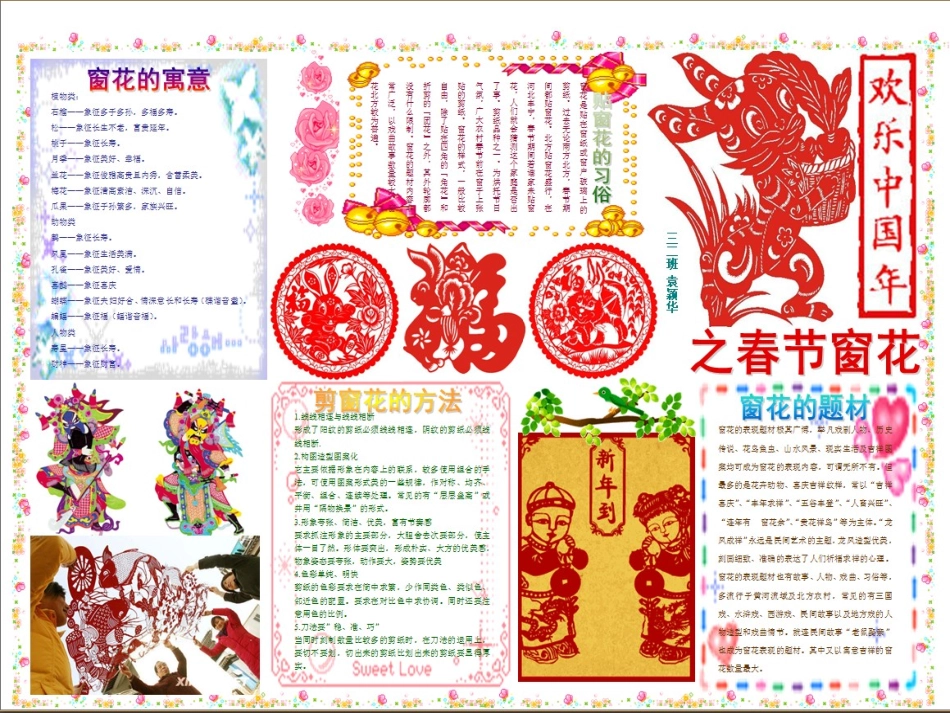 窗花的寓意
植物类:
石榴——象征多子多孙、多福多寿。
松——象征长生不老、富贵延年。
桃子——象征长寿。
月季——象征美好、幸福。
兰花——象征俊雅高贵且内秀、含蓄柔美。
梅花——象征清高素洁、深沉、自信。
瓜果——象征子孙繁多、家族兴旺。
动物类
鹤——象征长寿。
凤凰——象征生活美满。
孔雀——象征美好、爱情。
喜鹊——象征喜庆
蝙蝠——象征福(蝠谐音福)。
人物类
寿星——象征长寿。
财神——象征财富。
사랑해...
贴窗花的习俗
窗花是贴在窗纸或窗户玻璃上的
剪纸。过去无论南方北方,春节期
间都贴窗花。
事。剪纸品种之一。为烘托节日
气氛,广大农村春节前在窗子上张
贴的剪纸。窗花的样式,一般比较
自由,除了贴在四角的「角花」和
折剪的「团花」之外,其外轮廓都
没有什么限制。窗花的题材内容
常广泛,以戏曲故事数量较大
花北方较为普遍。
三二班 袁颖华
欢乐中国年
之春节窗花
福
剪窗花的方法
1.线线相连与线线相断
形成了阳纹的剪纸必须线线相连,阴纹的剪纸必须线
线相断.
2.构图造型图案化
它主要依据形象在内容上的联系,较多使用组合的手
法,可使用图案形式美的一些规律,作对称、均齐、
平衡、组合、连续等处理。
并用"隔物换景"的形式。
3.形象夸张、简洁、优美,富有节奏感
要求抓住形象的主要部分,大胆舍去次要部分,使主
体一目了然。形体要突出,形成朴实、大方的优美感;
物象姿态要夸张,动作要大,姿势要优美
4.色彩单纯、明快
剪纸的色彩要求在简中求繁,少作同类色、类似色、
邻近色的配置。要求在对比色中求协调。同时还要注
意用色的比例。
5.刀法要"稳、准、巧"
当同时刻制数量比较多的剪纸时,在刀法的运用上,
要切不要划,切出来的剪纸比划出来的剪纸要显得厚
实。
Sweet Love
新年到
窗花的题材
窗花的表现题材极其广博,举凡戏剧人物、历史
传说、花鸟鱼虫、山水风景、现实生活及吉祥图
案均可成为窗花的表现内容,可谓无所不有。但
最多的是花卉动物、喜庆吉祥纹样,常以"吉祥
喜庆"、"丰年求祥"、"五谷丰登"、"人畜兴旺"、
"连年有 窗花余"、"贵花祥鸟"等为主体。"龙
凤成祥"永远是民间艺术的主题,龙凤造型优美,
刻画细致,准确的表达了人们祈福求祥的心理。
窗花的表现题材也有故事、人物、戏曲、习俗等,
多流行于黄河流域及北方农村,常见的有三国
戏、水浒戏、西游戏、民间故事以及地方戏的人
物造型和戏曲情节。就连民间故事"老鼠娶亲"
也成为窗花表现的题材。其中又以寓意吉祥的窗
花数量最大。